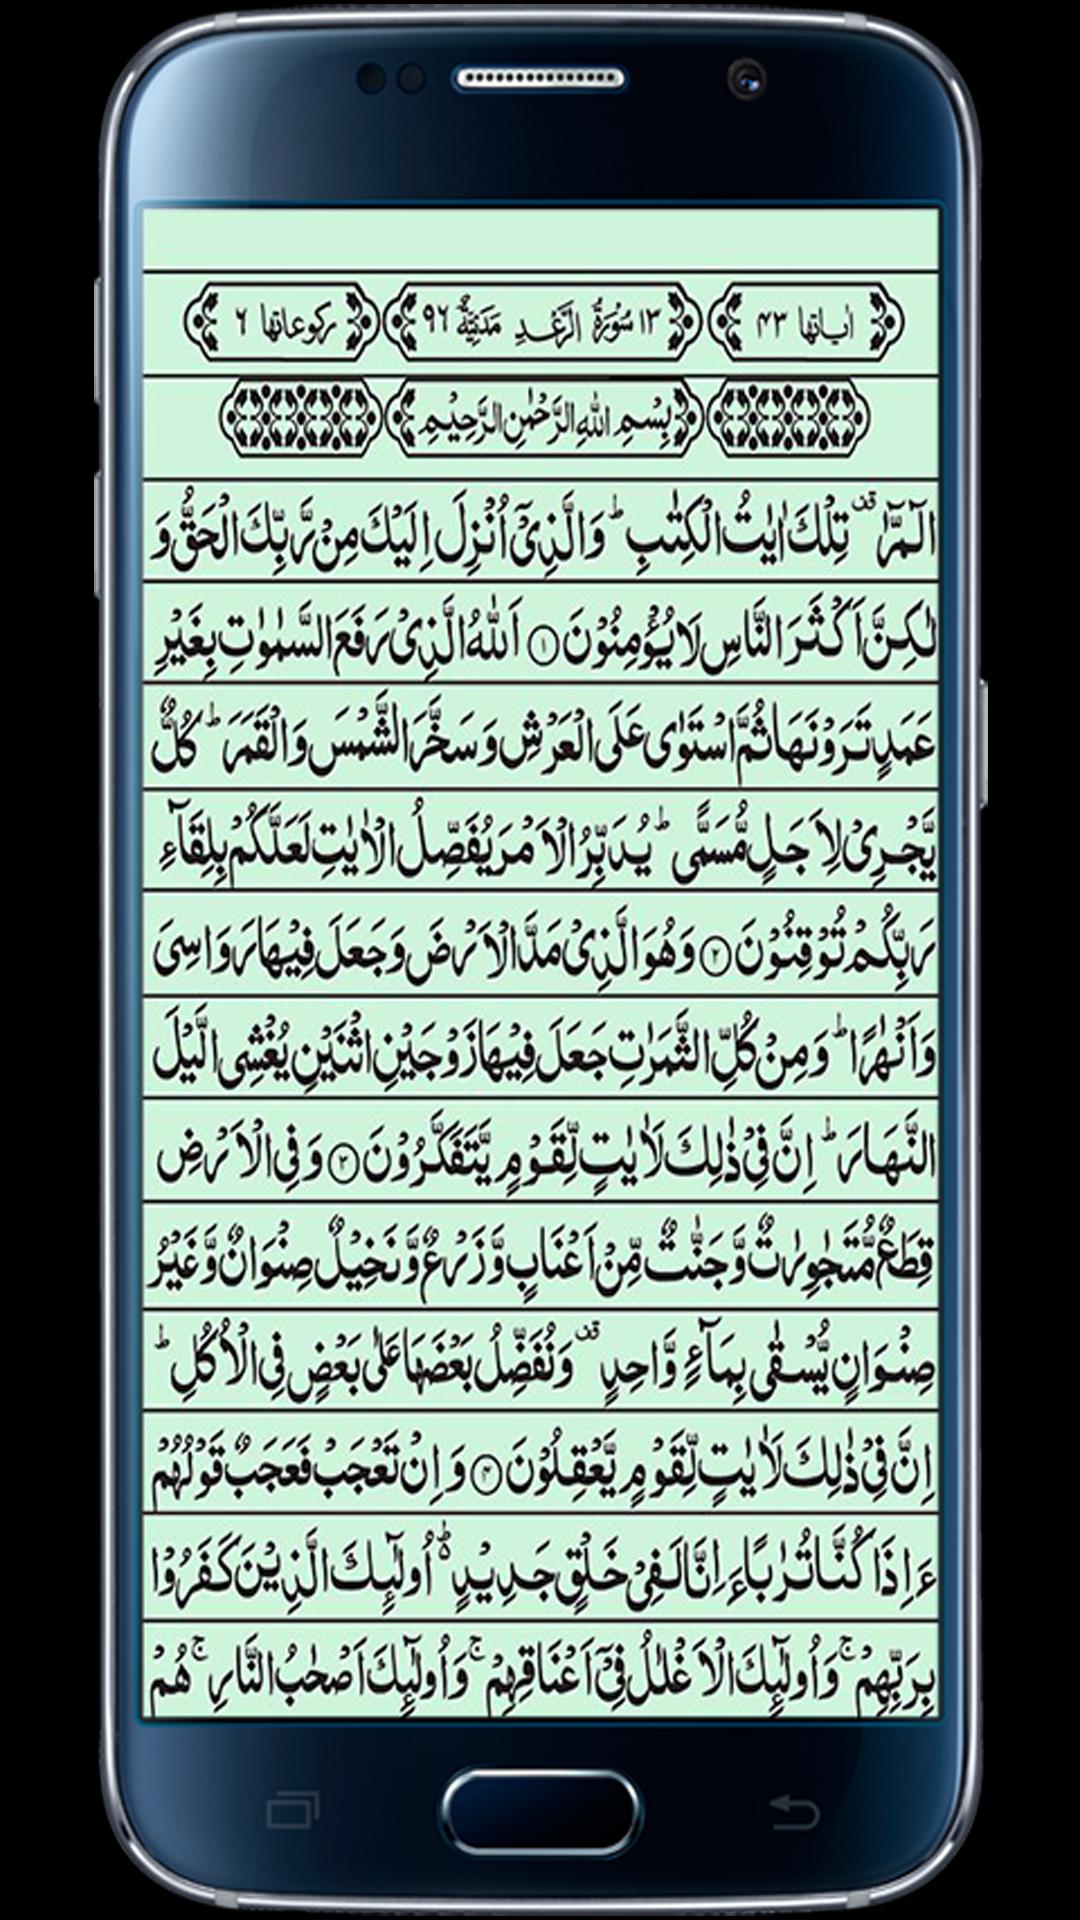 اٰیاتها ۴۳ ۱۳ سُوْرَةُ الرَّعْدِ مَدَنِيَّةٌ ۹۶ رکوعاتها ۶
بِسْمِ اللّٰهِ الرَّحْمٰنِ الرَّحِيْمِ
الٓمّٓرٰ ۟ تِلْكَ اٰيٰتُ الْكِتٰبِ ؕ وَالَّذِيْۤ اُنْزِلَ اِلَيْكَ مِنْ رَّبِّكَ الْحَقُّ وَ
لٰكِنَّ اَكْثَرَ النَّاسِ لَا يُؤْمِنُوْنَ ۱ اَللّٰهُ الَّذِيْ رَفَعَ السَّمٰوٰتِ بِغَيْرِ
عَمَدٍ تَرَوْنَهَا ثُمَّ اسْتَوٰى عَلَى الْعَرْشِ وَ سَخَّرَ الشَّمْسَ وَ الْقَمَرَ ؕ كُلٌّ
يَّجْرِيْ لِاَجَلٍ مُّسَمًّى ؕ يُدَبِّرُ الْاَمْرَ يُفَصِّلُ الْاٰيٰتِ لَعَلَّكُمْ بِلِقَآءِ
رَبِّكُمْ تُوْقِنُوْنَ ۲ وَ هُوَ الَّذِيْ مَدَّ الْاَرْضَ وَ جَعَلَ فِيْهَا رَوَاسِيَ
وَ اَنْهٰرًا ؕ وَ مِنْ كُلِّ الثَّمَرٰتِ جَعَلَ فِيْهَا زَوْجَيْنِ اثْنَيْنِ يُغْشِي الَّيْلَ
النَّهَارَ ؕ اِنَّ فِيْ ذٰلِكَ لَاٰيٰتٍ لِّقَوْمٍ يَّتَفَكَّرُوْنَ ۳ وَ فِي الْاَرْضِ
قِطَعٌ مُّتَجٰوِرٰتٌ وَّ جَنّٰتٌ مِّنْ اَعْنَابٍ وَّ زَرْعٌ وَّ نَخِيْلٌ صِنْوَانٌ وَّ غَيْرُ
صِنْوَانٍ يُّسْقٰى بِمَآءٍ وَّاحِدٍ ۟ وَ نُفَضِّلُ بَعْضَهَا عَلٰى بَعْضٍ فِي الْاُكُلِ ؕ
اِنَّ فِيْ ذٰلِكَ لَاٰيٰتٍ لِّقَوْمٍ يَّعْقِلُوْنَ ۴ وَ اِنْ تَعْجَبْ فَعَجَبٌ قَوْلُهُمْ
ءَاِذَا كُنَّا تُرٰبًا ءَاِنَّا لَفِيْ خَلْقٍ جَدِيْدٍ ۬ؕ اُولٰٓئِكَ الَّذِيْنَ كَفَرُوْا
بِرَبِّهِمْ ۚ وَ اُولٰٓئِكَ الْاَغْلٰلُ فِيْۤ اَعْنَاقِهِمْ ۚ وَ اُولٰٓئِكَ اَصْحٰبُ النَّارِ ۚ هُمْ